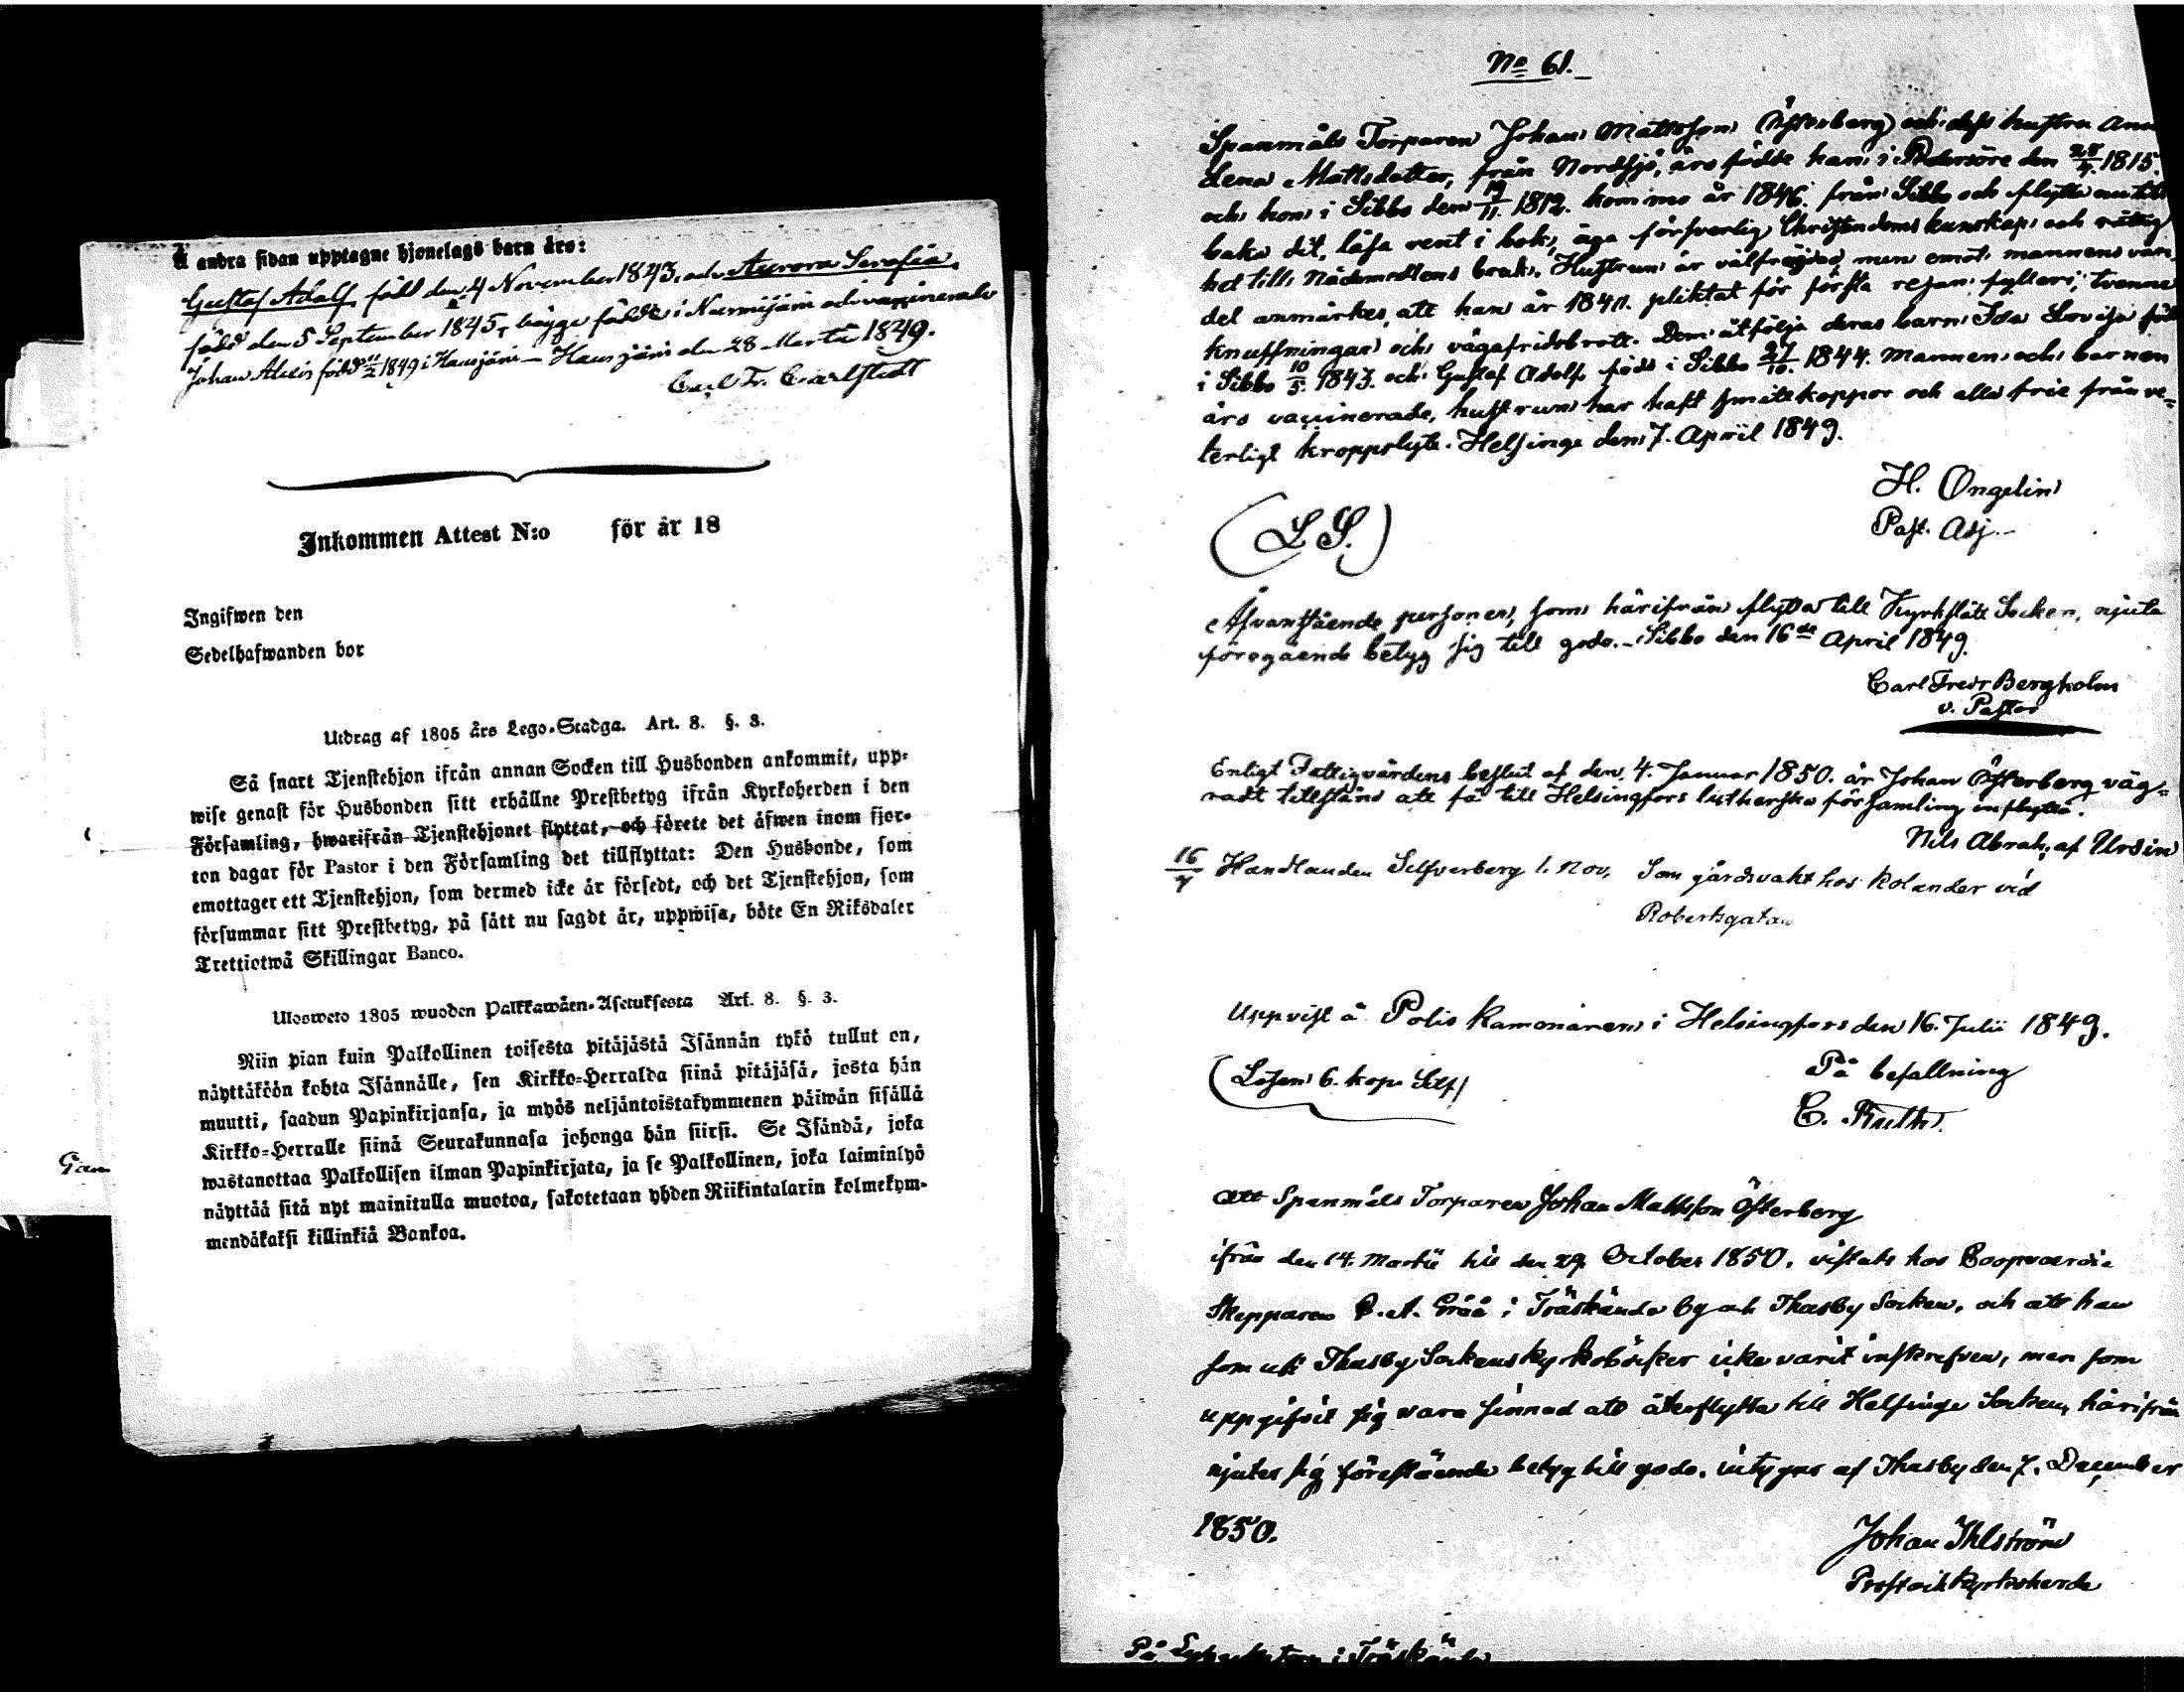 Å andra sidan upptagne hjonelags barn äro:
Gustaf Adolf född den 4 November 1843, och Aurora Serafia,
född den 5 September 1845, bägge födde i Nurmijärvi och vaccinerade
Johan Alexis född 11/2 1849 i Hausjärvi – Hausjärvi den 28 Martii 1849.
Carl Fr. Carlstedt
Inkommen Attest N:o för år 18
Ingifwen den
Sedelhafwanden bor
Utdrag af 1805 års Lego-Stadga. Art. 8. §. 3.
Så snart Tjenstehjon ifrån annan Socken till Husbonden ankommit, upp-
wise genast för Husbonden sitt erhållne Prestbetyg ifrån Kyrkoherden i den
Församling, hwarifrån Tjenstehjonet flyttat, och förete det äfwen inom fjor-
ton dagar för Pastor i den Församling det tillflyttat: Den Husbonde, som
emottager ett Tjenstehjon, som dermed icke är försedt, och det Tjenstehjon, som
försummar sitt Prestbetyg, på sätt nu sagdt är, uppwisa, böte En Riksdaler
Trettiotwå Skillingar Banco.
Ulosweto 1805 wuoden Palkkawäen-Asetuksesta Art. 8. §. 3.
Niin pian kuin Palkollinen toisesta pitäjästä Isännän tykö tullut on,
näyttäköön kohta Isännälle, sen Kirkko-Herralda siinä pitäjäsä, josta hän
muutti, saadun Papinkirjansa, ja myös neljäntoistakymmenen päiwän sisällä
Kirkko-Herralle siinä Seurakunnasa johonga hän siirsi. Se Isändä, joka
wastanottaa Palkollisen ilman Papinkirjata, ja se Palkollinen, joka laiminlyö
näyttää sitä nyt mainitulla muotoa, sakotetaan yhden Riikintalarin kolmekym-
mendäkaksi killinkiä Bankoa.
No 61.
Spanmåls Torparen Johan Mattsson (Österberg) och dess hustru Anna
Lena Mattsdotter, från Nordsjö, äro födde han i Pedersöre den 28/4 1815.
och hon i Sibbo den 19/11 1812. kommo år 1846. från Sibbo och flytta nu till-
baka dit, läsa rent i bok, äga försvarlig Christendoms kunskap och rättig-
het till Nådemedlens bruk. Hustrun är välfrägdad men emot mannens van-
del anmärkes, att han år 1841. pliktat för första resan fylleri, tvenne
knuffningar och vägafridsbrott. Dem åtfölja deras barn Ida Lovisa född
i Sibbo 10/5 1843. och Gustaf Adolf född i Sibbo 27/10 1844. Mannen och barnen
äro vaccinerade, hustrun har haft smittkoppor och alla frie från ve-
terligt kroppslyte. Helsinge den 7. April 1849.
H. Ongelin
Past. Adj.
(L. S.)
Ofvanstående personer, som härifrån flytta till Kyrkslätt Socken, njuta
föregående betyg sig till godo. – Sibbo den 16de April 1849.
Carl Fredr Bergholm
v. Pastor
Enligt Fattigvårdens beslut af den 4. Januar 1850. är Johan Österberg väg-
radt tillstånd att få till Helsingfors lutherska församling inflytta.
Nils Abrah. af Ursin
16/7 Handlanden Selfverberg 1. Nov. Som gårdsvakt hos Kolander vid
Robertsgatan
Uppvist å Polis Kamonaren i Helsingfors den 16. Julii 1849.
(Lösen 6. kop. Silf)
På befallning
C. Fruth.
Att Spanmåls Torparen Johan Mattsson Österberg
ifrån den 14. Martii till den 29. October 1850. vistats hos Coopvaerdie
Skepparen C. A. Gråå i Träskända by och Thusby Socken, och att han
som uti Thusby Sockens kyrkoböcker icke varit inskrefven, men som
uppgifvit sig vara sinnad att återflytta till Helsinge Socken, härifrån
njuter sig föreståends betyg till godo, intygas af Thusby den 7. December
1850.
Johan Ihlström
Prost och Kyrkoherde